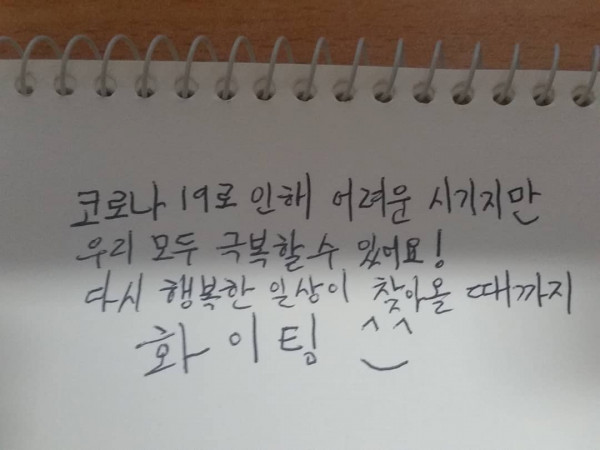 코로나 19로 인해 어려운 시기지만
우리 모두 극복할 수 있어요!
다시 행복한 일상이 찾아올 때까지
화이팅 ^^